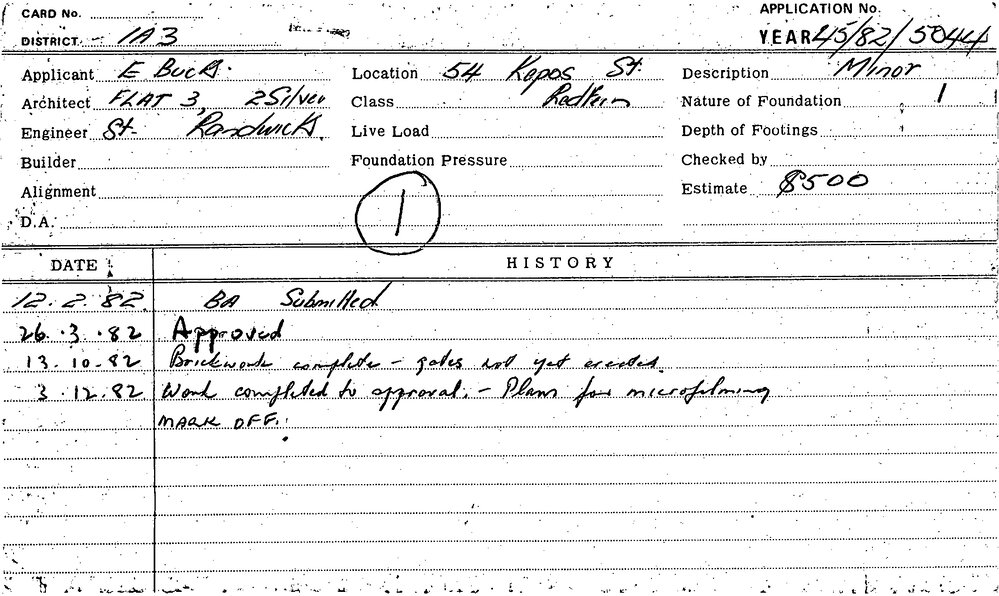 CARD No.
APPLICATION No.
DISTRICT 1A3
YEAR 45/82/5044
Applicant E Buck.
Location 54 Kepos St.
Description Minor
Architect FLAT 3, 2 Silver
Class Redfern
Nature of Foundation 1
Engineer St. Randwick.
Live Load
Depth of Footings
Builder
Foundation Pressure
Checked by
Alignment
Estimate $500
D.A.
1
DATE
HISTORY
12.2.82. BA Submitted
26.3.82 Approved
13.10.82 Brickwork complete - gates not yet erected.
3.12.82 Work completed to approval. - Plans for microfilming
MARK OFF.